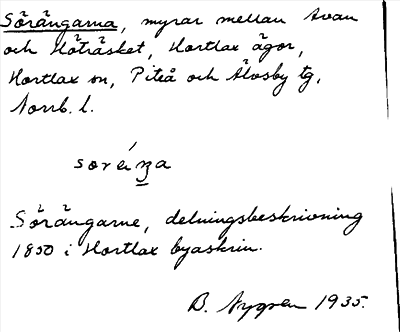 Sörängarna, myrar mellan Avan
och Höträsket, Hortlax ägor,
Hortlax sn, Piteå och Älvsby tg,
Norrb. l.
Sörängarne, delningsbeskrivning
1850 i Hortlax byaskrin.
B. Nygren 1935.